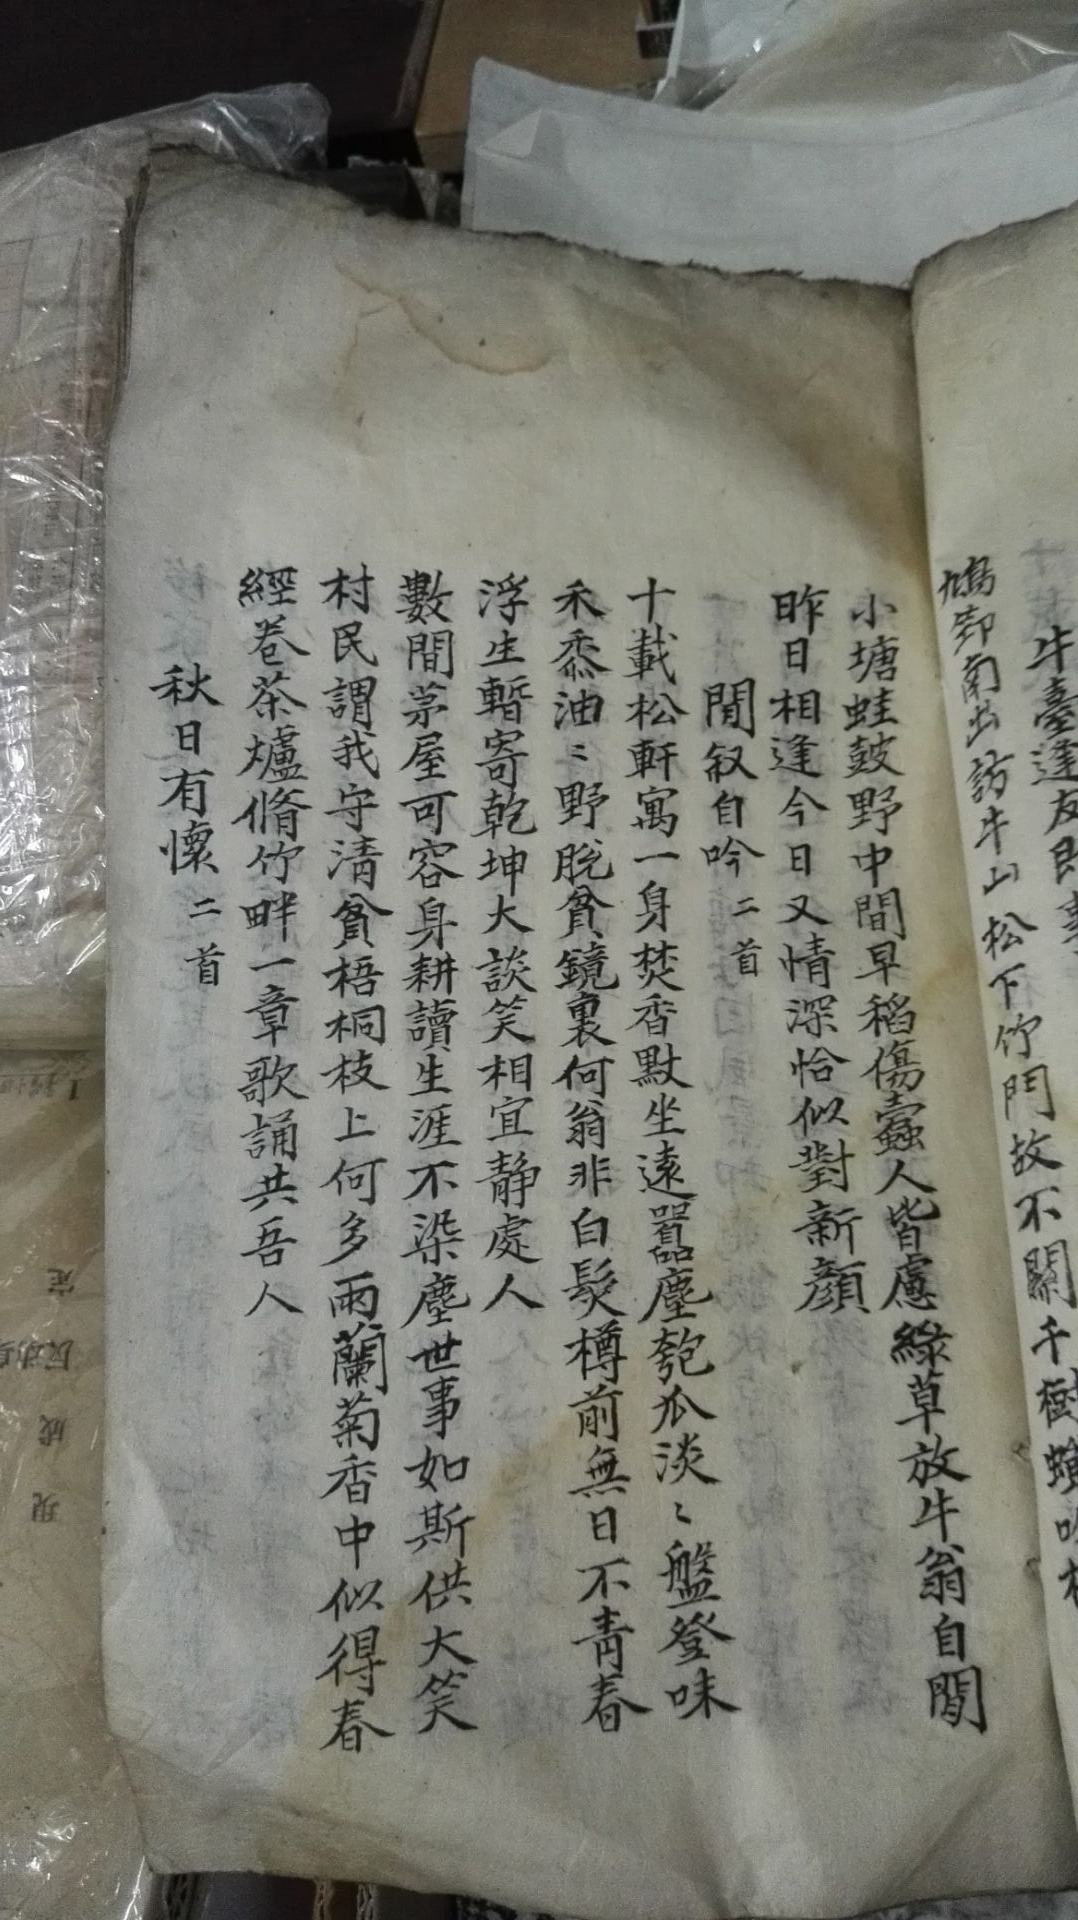 牛臺逢友即事
鳩卸南出訪牛山松下竹門故不關千樹蟻
小塘蛙鼓野中間早稻傷蠹人皆慮綠草放牛翁自閒
昨日相逢今日又情深恰似對新顏
閒叙自吟 二首
十載松軒寓一身焚香默坐遠囂塵匏瓜淡〻盤登味
禾黍油〻野脫貧鏡裏何翁非白髮樽前無日不青春
浮生暫寄乾坤大談笑相宜静處人
數間茅屋可容身耕讀生涯不染塵世事如斯供大笑
村民謂我守清貧梧桐枝上何多雨蘭菊香中似得春
經卷茶爐脩竹畔一章歌誦共吾人
秋日有懷 二首